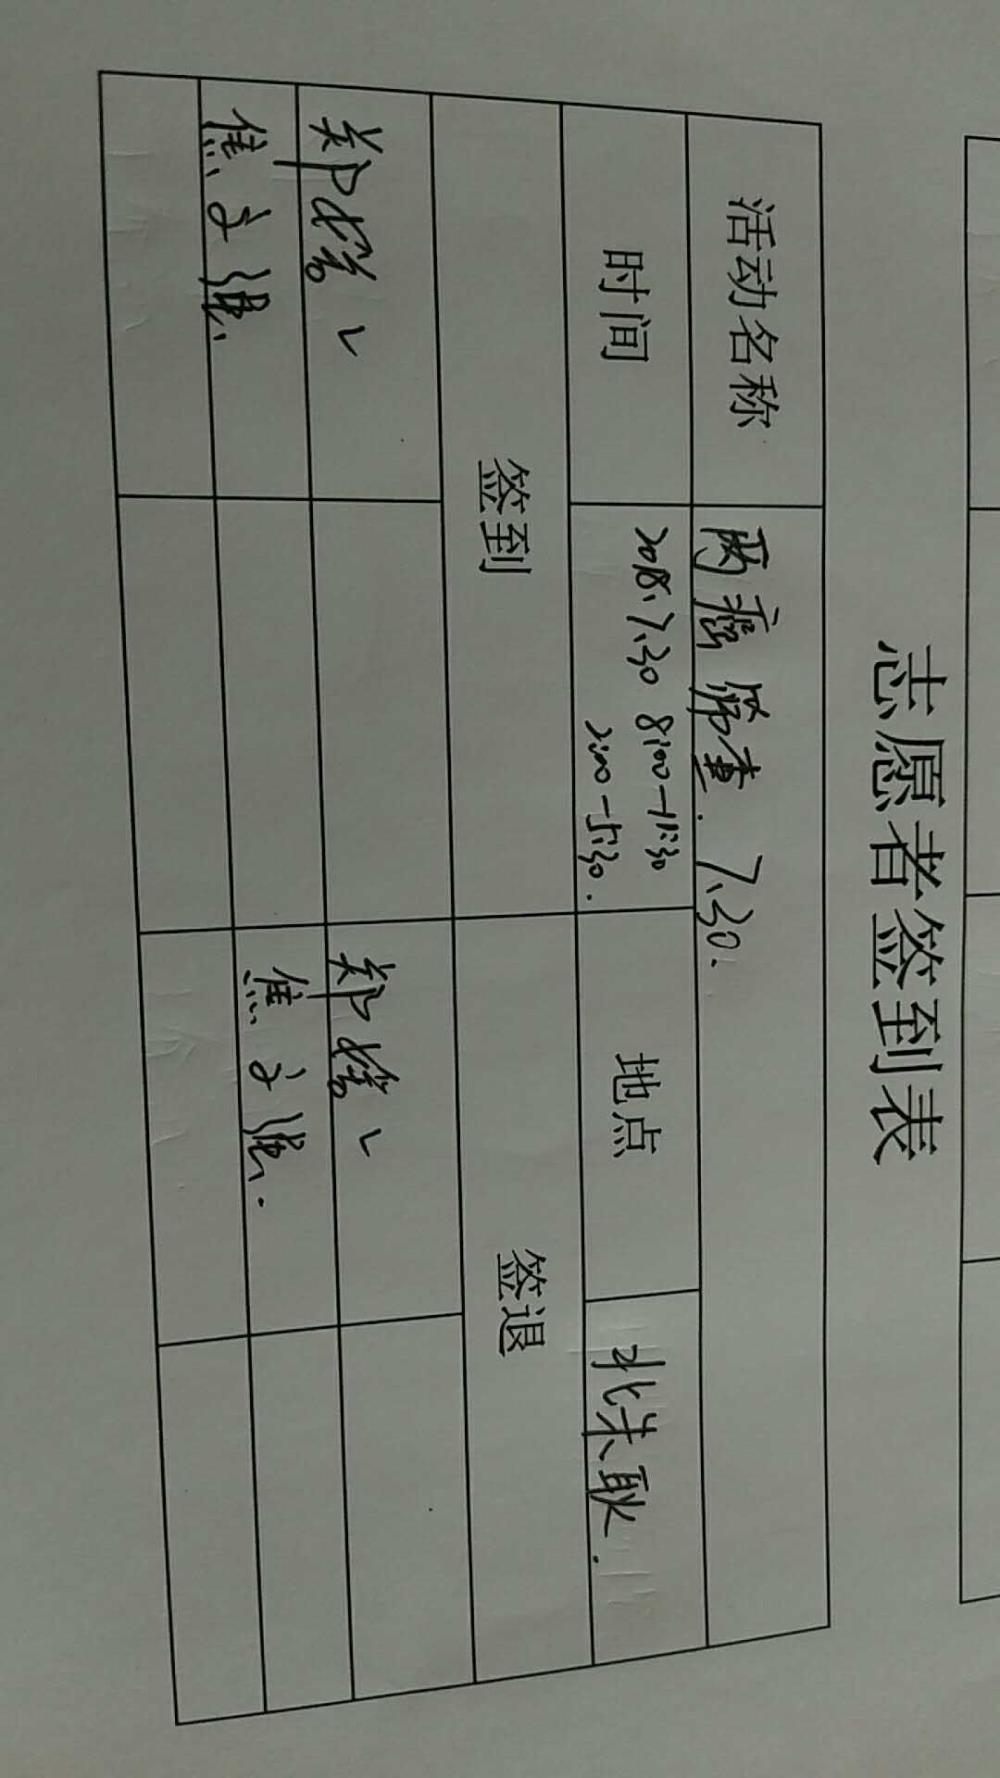 志愿者签到表
活动名称 两癌筛查. 7.30.
时间 2018.7.30 8:00-11:30 地点 北朱耿.
2:00-5:30.
签到 签退
郑 郑
焦文 焦文